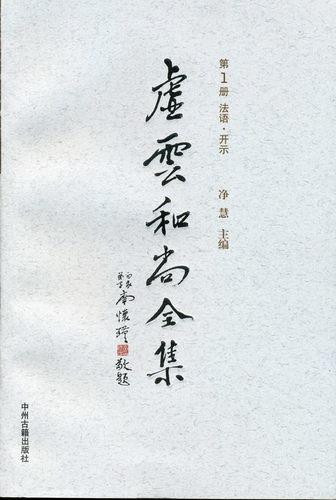 第1册 法语·开示
净慧 主编
虚雲和尚全集
南懷瑾
敬題
中州古籍出版社